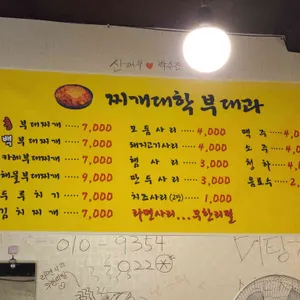 신 ♥ 박
찌개대학 부대과
부대찌개 ····· 7,000
백 부대찌개 ···· 7,000
카레부대찌개 ···· 7,000
해물부대찌개 ···· 9,000
두루치기 ···· 7,000
김치찌개 ···· 7,000
모둠사리 ········ 4,000
돼지고기사리 ···· 4,000
햄사리 ········ 3,000
만두사리 ······ 3,000
치즈사리 ···· 1,000
라면사리...무한리필
맥주 ···· 4
소주 ···· 4
청하 ···· 4
음료수 ···· 2
010-9354
022